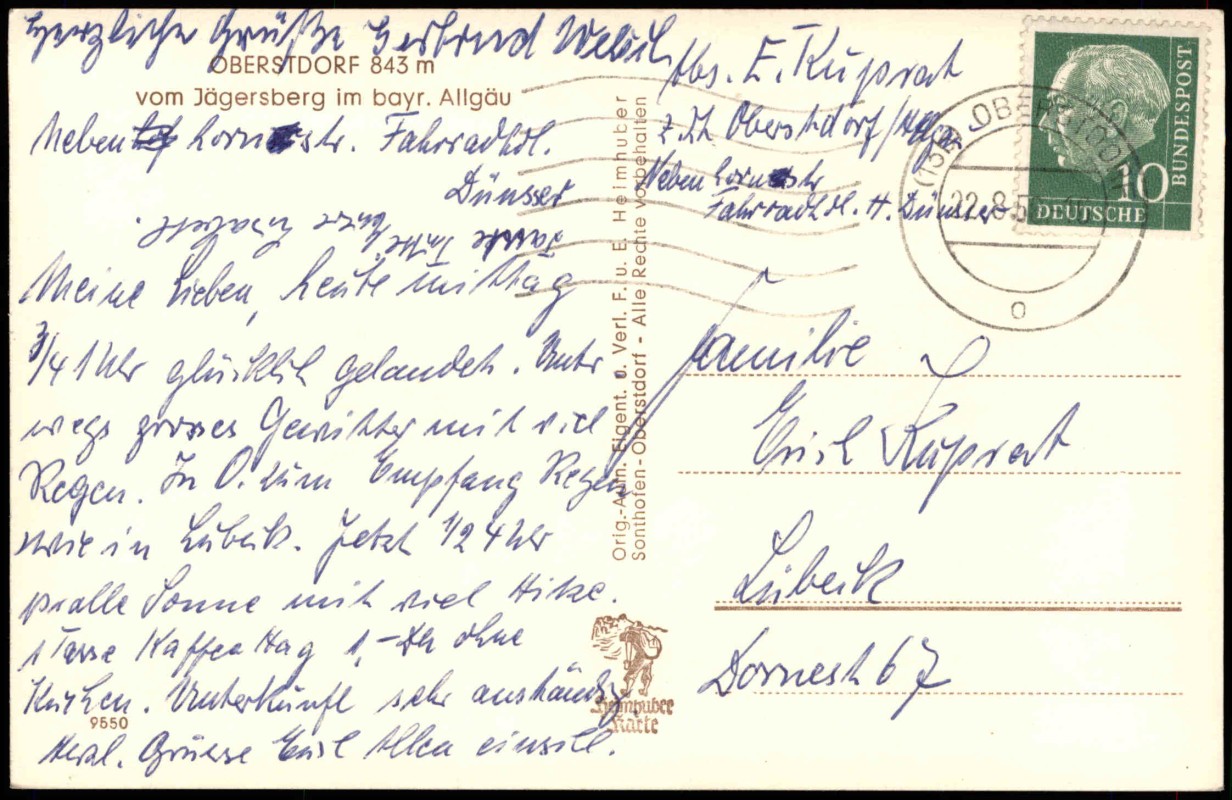 Herzliche Grüße Gertrud
OBERSTDORF 843 m
vom Jägersberg im bayr. Allgäu
Neben Lorn str. Fahrradhdl.
Dünsser
Meine Lieben, heute mittag
3/4 1 Uhr glücklich gelandet. Unter
wegs grosses Gewitter mit viel
Regen. In O. zum Empfang Regen
wie in Lübeck. Jetzt 1/2 4 Uhr
pralle Sonne mit viel Hitze.
1 Tasse Kaffee Hag 1,- DM ohne
Kuchen. Unterkunft sehr anständig.
9550
Herzl. Grüsse Erich
Orig.-Aufn. Eigent. u. Verl. F. u. E. Heimhuber
Sonthofen-Oberstdorf - Alle Rechte vorbehalten
Heimhuber
Karte
Abs. E. Kuprat
z. Zt. Oberstdorf/Allg.
Neben Lorn str
Fahrradhdl. H. Dünsser
OBERSTDORF
22.8.5
BUNDESPOST
10
DEUTSCHE
Familie
Erich Kuprat
Lübeck
Dornestr 67